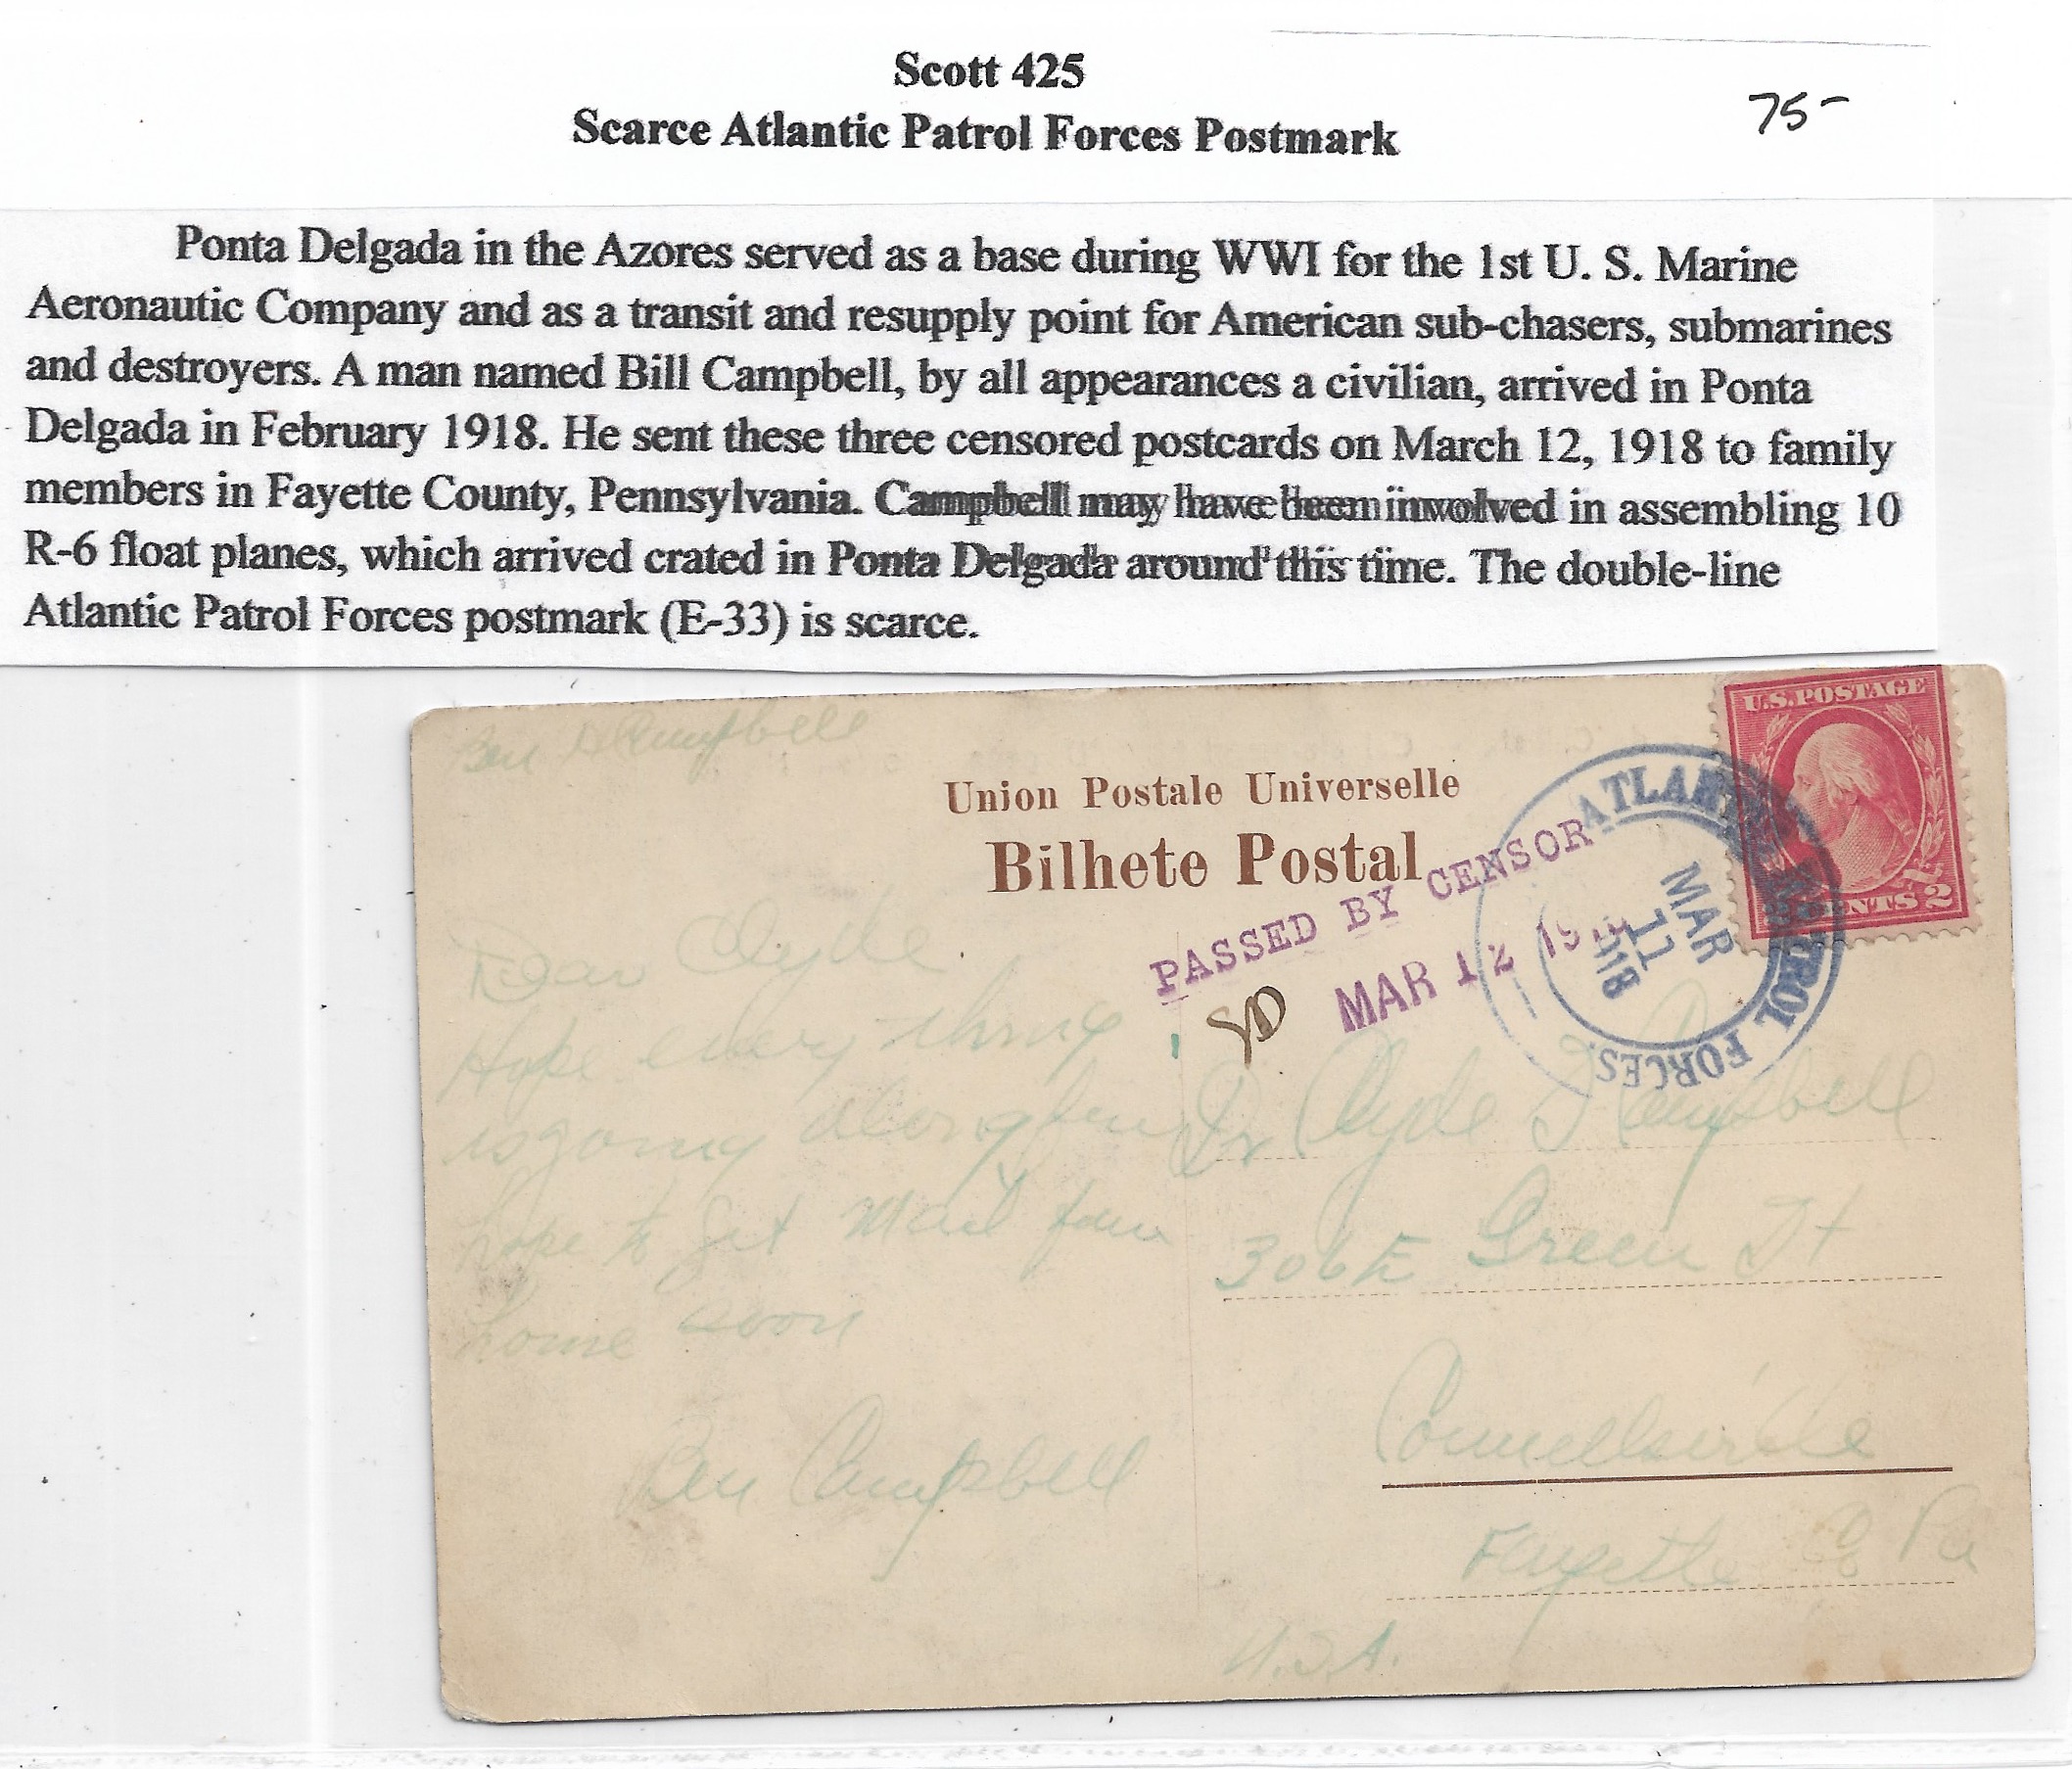 Scott 425
Scarce Atlantic Patrol Forces Postmark
75-
Ponta Delgada in the Azores served as a base during WWI for the 1st U. S. Marine
Aeronautic Company and as a transit and resupply point for American sub-chasers, submarines
and destroyers. A man named Bill Campbell, by all appearances a civilian, arrived in Ponta
Delgada in February 1918. He sent these three censored postcards on March 12, 1918 to family
members in Fayette County, Pennsylvania. Campbell may have been involved in assembling 10
R-6 float planes, which arrived crated in Ponta Delgada around this time. The double-line
Atlantic Patrol Forces postmark (E-33) is scarce.
Ben H Campbell
Union Postale Universelle
Bilhete Postal
U.S. POSTAGE
CENTS 2
ATLANTIC PATROL FORCES.
MAR
11
1918
PASSED BY CENSOR
MAR 12 191
Dear Clyde
Hope every thing
is going along fine
hope to get mail from
home soon
Ben Campbell
Dr Clyde Campbell
306 E Green St
Connellsville
Fayette Co Pa
U.S.A.